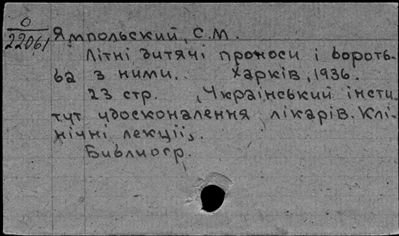 О
22061
Ямпольский, С.М.
Літні дитячі проноси і бороть-
ба з ними. Харків, 1936.
23 стр. „Український інсти
тут удосконалення лікарів. Клі-
нічні лекції„.
Библиогр.